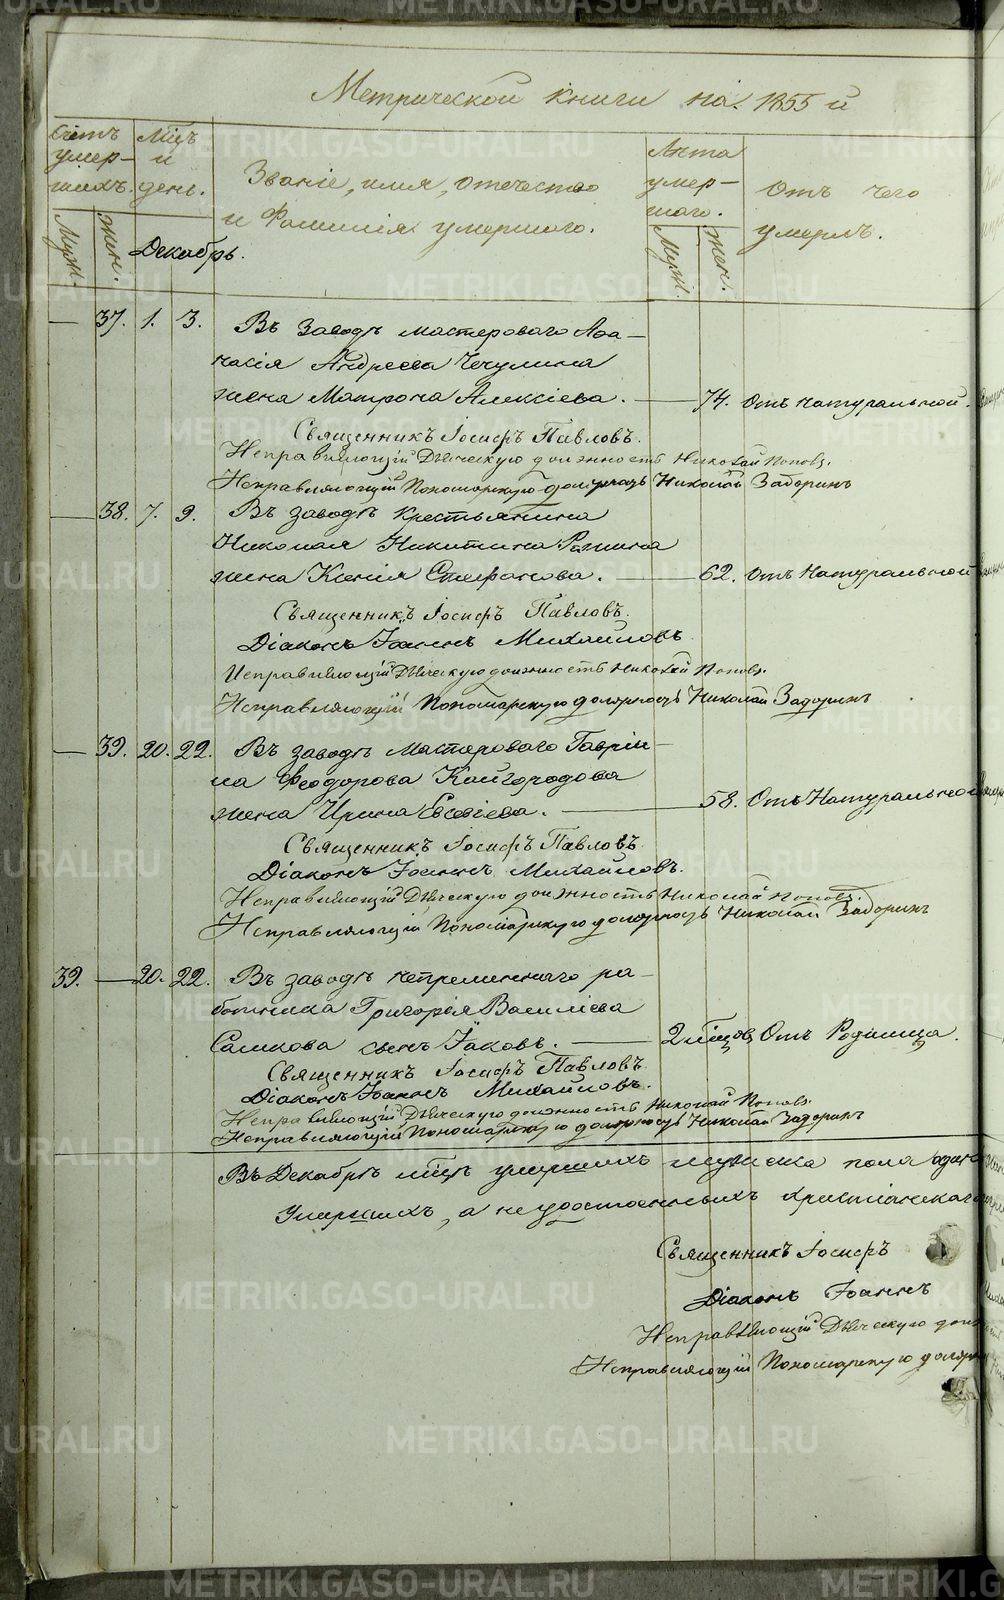 Метрической книги на 1855 й
Счетъ умер-шихъ. Муж. Жен.
Мцъ и день.
Званіе, имя, отечество и Фамилія умершаго.
Лѣта умер-шаго. Муж. Жен.
Отъ чего умеръ.
Декабрь.
— 37. 1. 3. Въ Заводѣ мастероваго Афа-
насія Андреева Чечулина
жена Матрона Алексіева. — 74. Отъ натуральной.
Священникъ Іосифъ Павловъ.
Исправляющій Дьяческую должность Николай Поповъ.
Исправляющій Пономарскую должность Николай Задоринъ
— 38. 7. 9. Въ заводѣ крестьянина
Николая Никитина
жена Ксенія Стефанова. — 62. отъ Натуральной
Священникъ Іосифъ Павловъ.
Діаконъ Іоаннъ Михайловъ.
Исправляющій Дьяческую должность Николай Поповъ.
Исправляющій Пономарскую должность Николай Задоринъ
— 39. 20. 22. Въ заводѣ Мастероваго Гавріи-
ла Феодорова Кайгородова
жена Ирина Евсевіева. — 58. Отъ Натуральной
Священникъ Іосифъ Павловъ.
Діаконъ Іоаннъ Михайловъ.
Исправляющій Дьяческую должность Николай Поповъ.
Исправляющій Пономарскую должность Николай Задоринъ
39. — 20. 22. Въ заводѣ непременнаго ра-
ботника Григорія Василіева
Сашкова сынъ Іаковъ. — 2 мѣсцовъ Отъ Родимца.
Священникъ Іосифъ Павловъ.
Діаконъ Іоаннъ Михайловъ.
Исправляющій Дьяческую должность Николай Поповъ.
Исправляющій Пономарскую должность Николай Задоринъ
Въ Декабрѣ мцѣ умершихъ мужеска пола один
Умершихъ, а неудостоенныхъ христіанскаго
Священникъ Іосифъ
Діаконъ Іоаннъ
Исправляющій Дьяческую долж
Исправляющій Пономарскую должн
METRIKI.GASO-URAL.RU